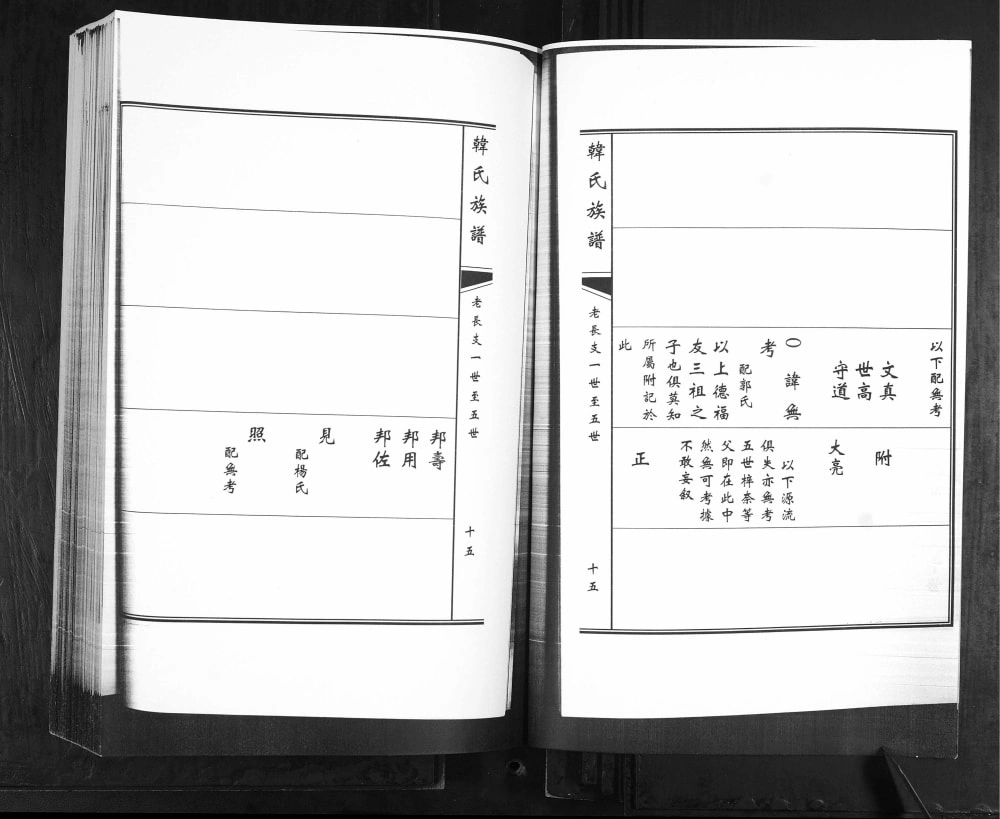 以下配無考
文真
世高
守道
〇諱無
考
配郭氏
以上德福
友三祖之
子也俱莫知
所屬附記於
此
附
大亮
以下源流
俱失亦無考
五世梓奈等
父即在此中
然無可考據
不敢妄叙
正
韓氏族譜
老長支一世至五世
十五
韓氏族譜
老長支一世至五世
十五
邦壽
邦用
邦佐
見
配楊氏
照
配無考